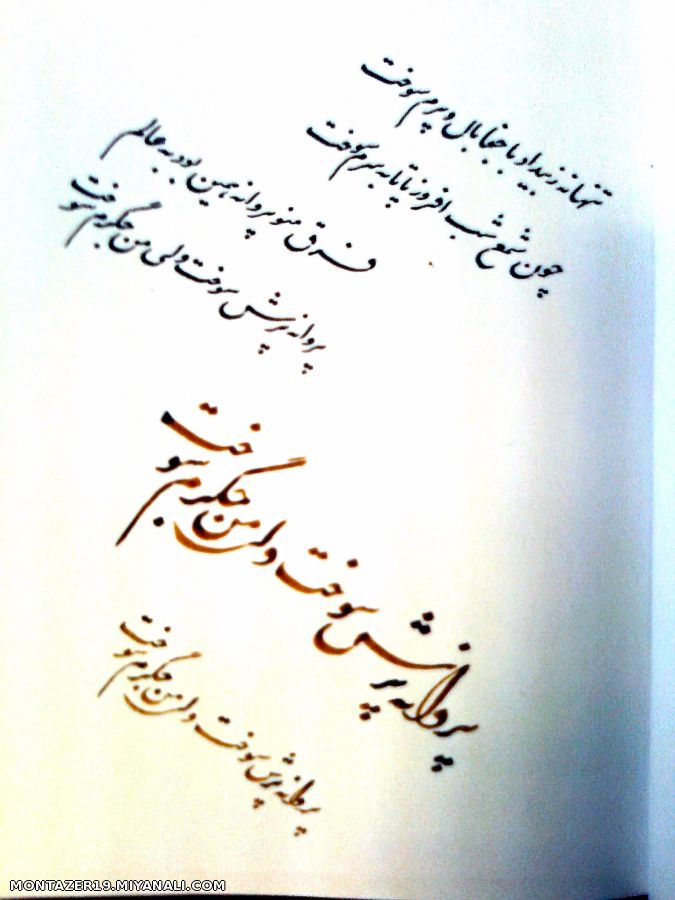 تنها نه ز بیداد یا جفا بال و پرم سوخت
چون شمع شب افروز ز پا تا به سرم سوخت
فرق من و پروانه همین بود به عالم
پروانه پرش سوخت ولی من جگرم سوخت
پروانه پرش سوخت ولی من جگرم سوخت
پروانه پرش سوخت ولی من جگرم سوخت
MONTAZER19.MIYANALI.COM